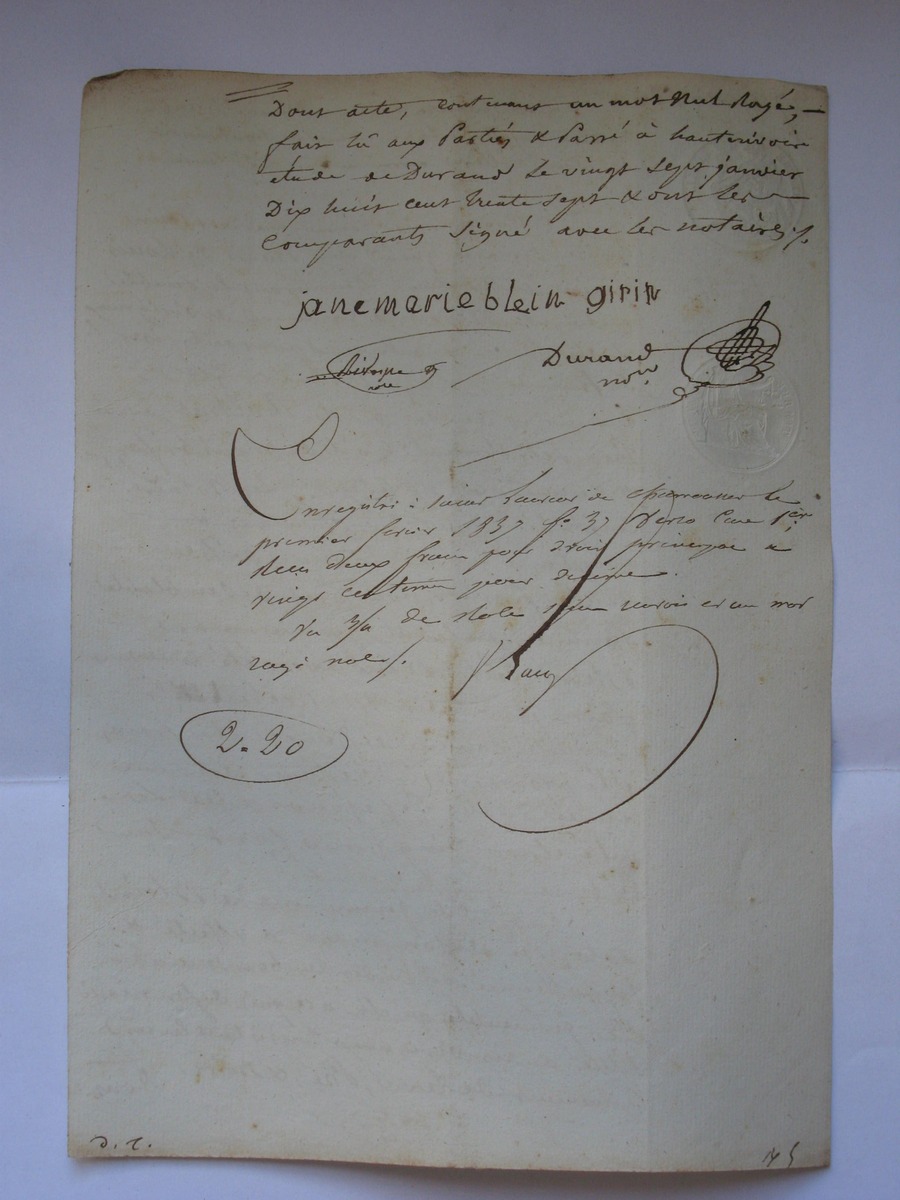 Dont acte, contenant un mot Nul Rayé,
fait lû aux Parties & Passé à hauterivoire
étude de Durand le vingt Sept janvier
Dix huit cent trente sept & ont les
Comparants Signé avec les notaires ./.
jane marie blein girin
Durand
nore
Enregistré à Saint Laurent de Chamousset le
premier fevrier 1837 fo 37 Verso Case 1ere
Recu deux francs pour droit principal &
vingt centimes pour decime.
Vu de Role un mot
rayé nul ./.
2=20
D. C.